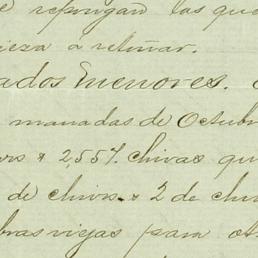 e repongan las que
pieza a retiñar.
ados menores.
manadas de Octubr
ors & 2,557. chivas qu
de chivos. & 2 de chi
bras viejas para ot